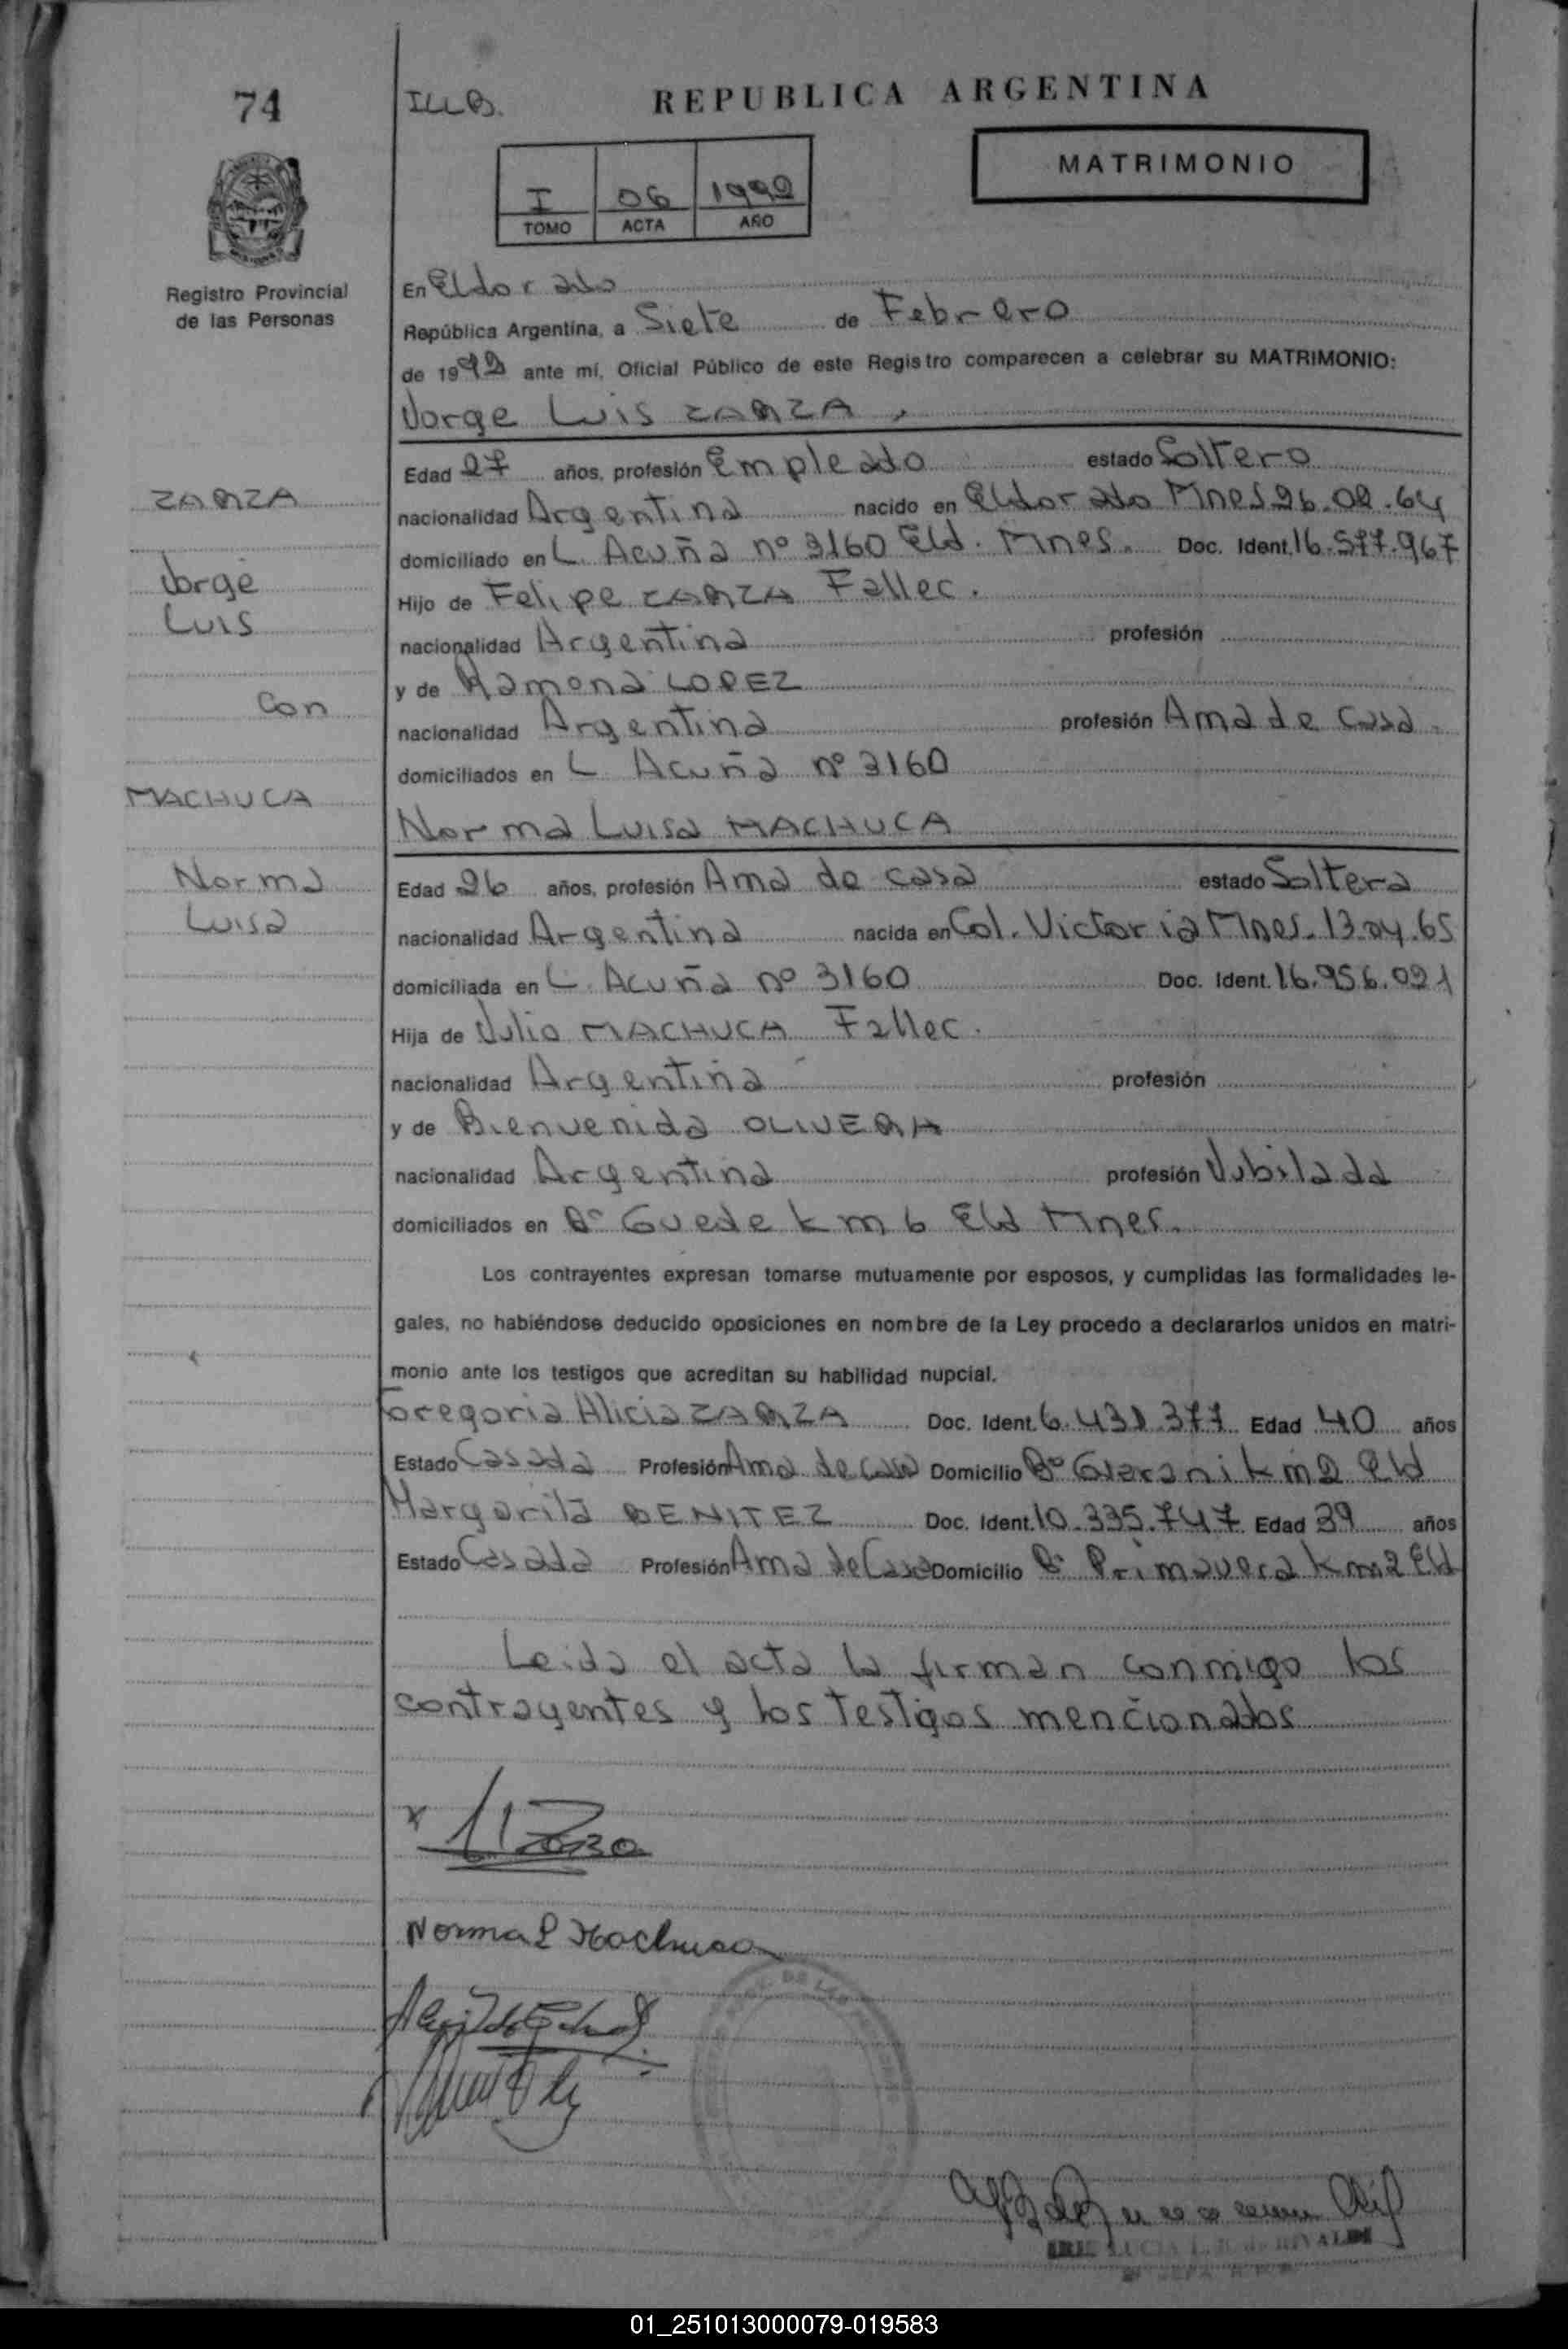 74
ILLB.
REPUBLICA ARGENTINA
MATRIMONIO
I 06 1992
TOMO ACTA AÑO
Registro Provincial
de las Personas
En Eldorado
República Argentina, a Siete de Febrero
de 1992 ante mí, Oficial Público de este Registro comparecen a celebrar su MATRIMONIO:
Jorge Luis ZARZA,
Edad 27 años, profesión Empleado estado Soltero
ZARZA
nacionalidad Argentina nacido en Eldorado Mnes 26.02.64
domiciliado en L. Acuña nº 3160 Eld. Mnes. Doc. Ident. 16.577.967
Jorge
Hijo de Felipe ZARZA Fallec.
Luis
nacionalidad Argentina profesión
y de Ramona LOPEZ
Con
nacionalidad Argentina profesión Ama de casa.
domiciliados en L Acuña nº 3160
MACHUCA
Norma Luisa MACHUCA
Norma
Edad 26 años, profesión Ama de casa estado Soltera
Luisa
nacionalidad Argentina nacida en Col. Victoria Mnes. 13.04.65
domiciliada en L. Acuña nº 3160 Doc. Ident. 16.956.021
Hija de Julio MACHUCA Fallec.
nacionalidad Argentina profesión
y de Bienvenida OLIVERA
nacionalidad Argentina profesión Jubilada
domiciliados en Bº Guede km 6 Eld Mnes.
Los contrayentes expresan tomarse mutuamente por esposos, y cumplidas las formalidades le-
gales, no habiéndose deducido oposiciones en nombre de la Ley procedo a declararlos unidos en matri-
monio ante los testigos que acreditan su habilidad nupcial.
Gregoria Alicia ZARZA Doc. Ident. 6.431.377 Edad 40 años
Estado Casada Profesión Ama de casa Domicilio Bº Guarani km 2 Eld
Margarita BENITEZ Doc. Ident. 10.335.747 Edad 39 años
Estado Casada Profesión Ama de Casa Domicilio Bº Primavera km 2 Eld
Leida el acta la firman conmigo los
contrayentes y los testigos mencionados
x
Norma L Machuca
01_251013000079-019583